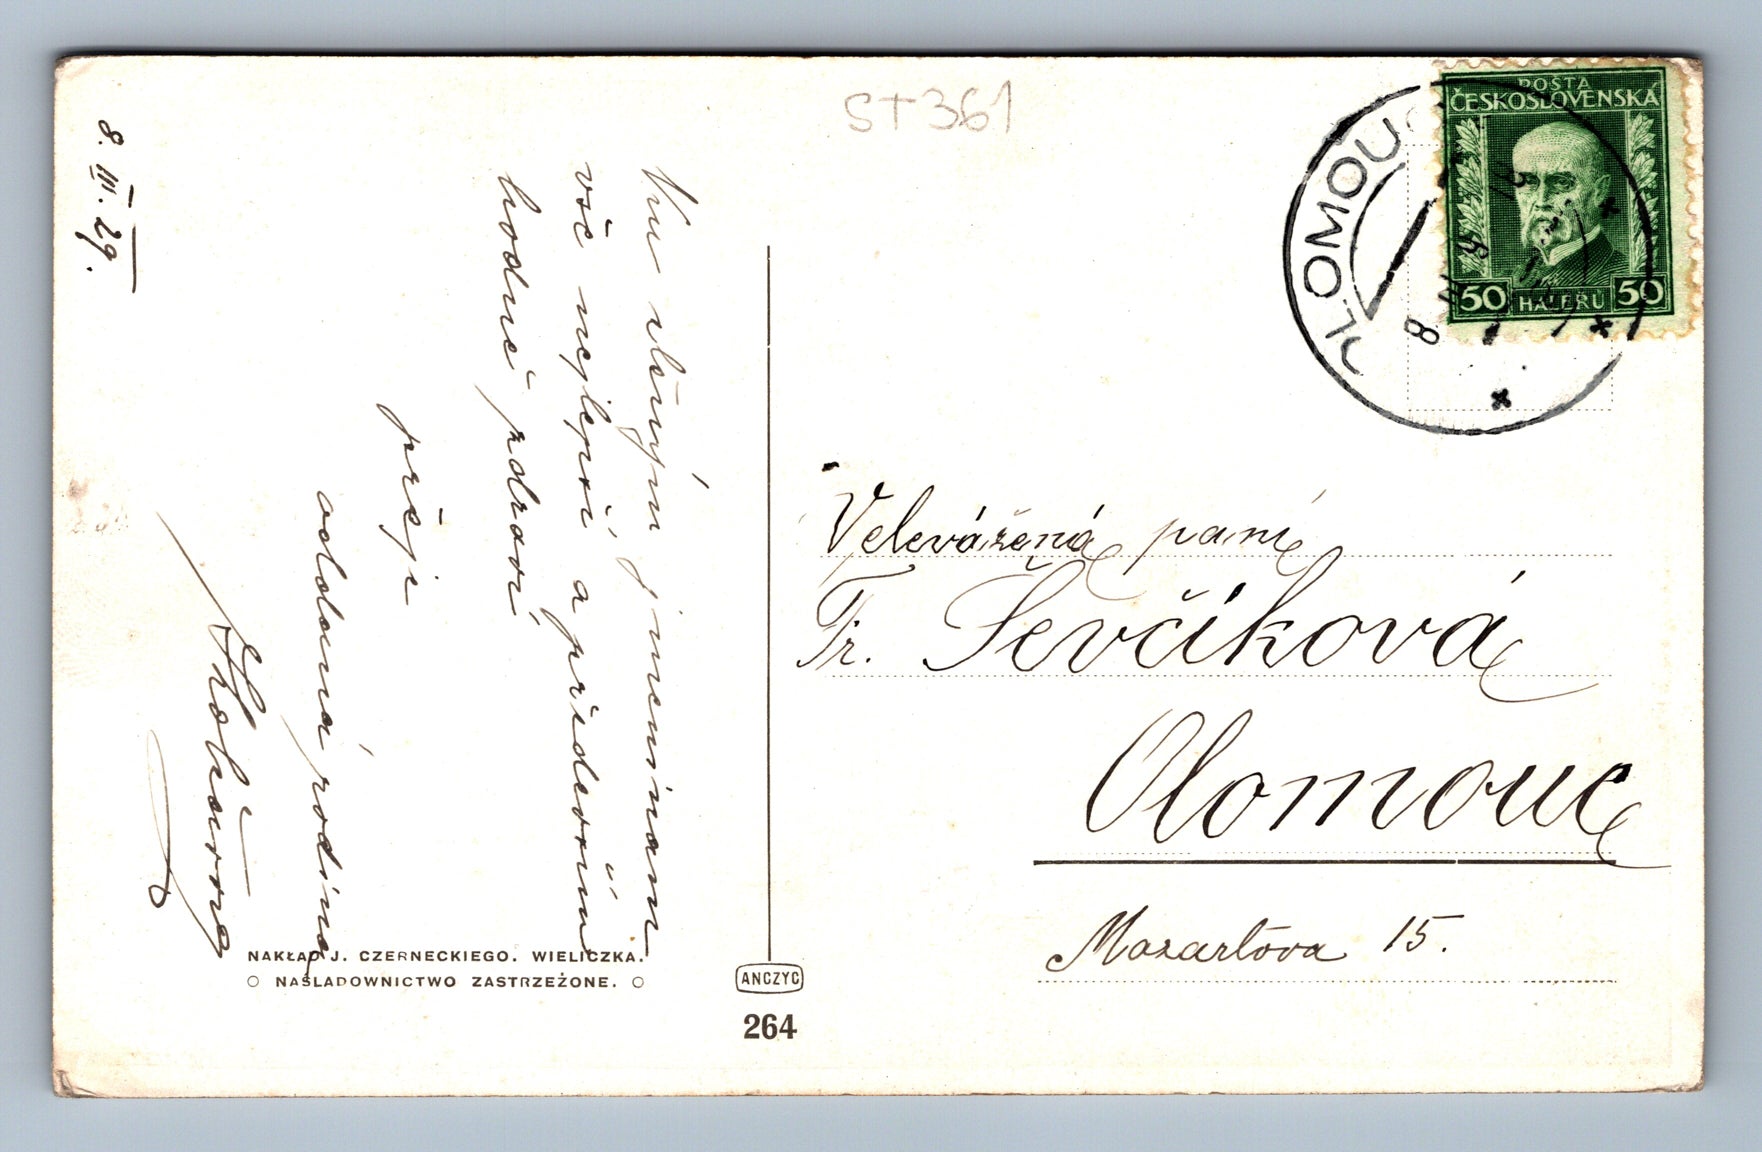 ST361
8. III. 29.
Ku ctěným jmeninám
vše nejlepší a především
hodně zdraví
přeji
oddaná rodina
Velevážená paní
Fr. Ševčíková
Olomouc
Mozartova 15.
POŠTA
ČESKOSLOVENSKÁ
50 HALÉŘŮ 50
OLOMOUC
8
NAKŁAD J. CZERNECKIEGO. WIELICZKA.
NAŚLADOWNICTWO ZASTRZEŻONE.
ANCZYC
264